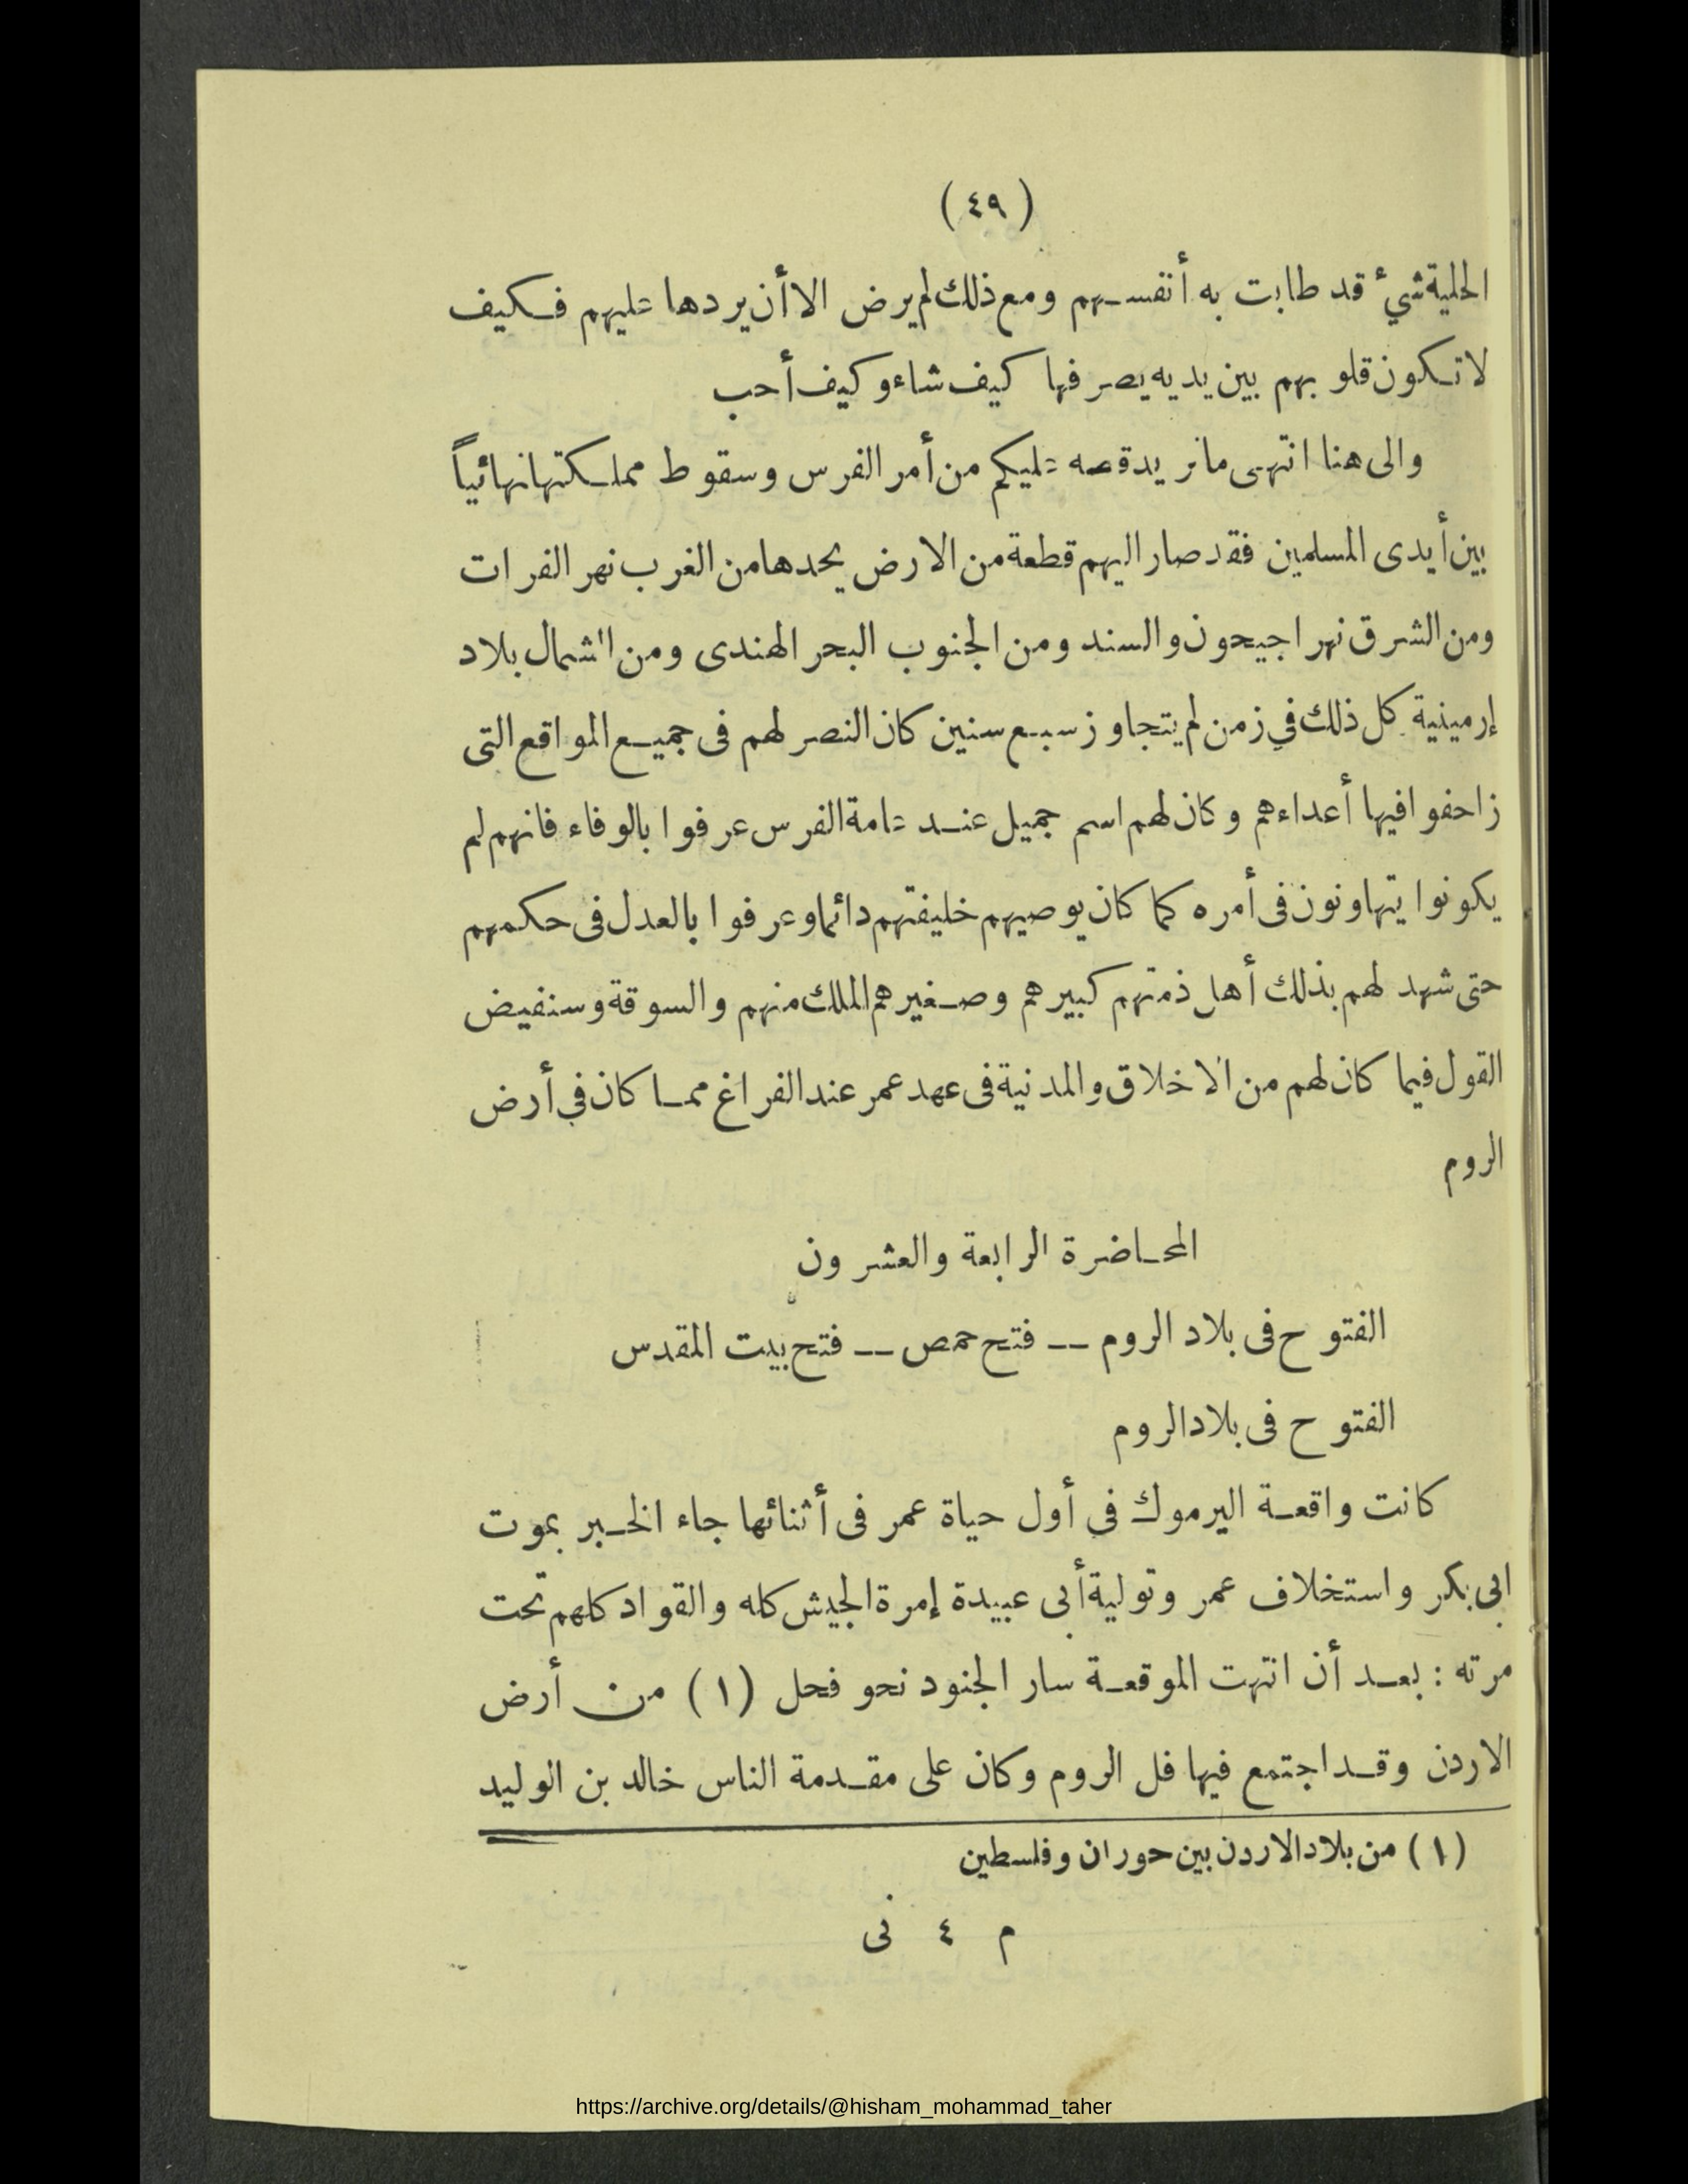 (٤٩)
الحلية شيء قد طابت به أنفسهم ومع ذلك لم يرض الا أن يردها عليهم فكيف
لا تكون قلوبهم بين يديه يصرفها كيف شاء وكيف أحب
والى هنا انتهى ما نريد قصه عليكم من أمر الفرس وسقوط مملكتها نهائياً
بين أيدى المسلمين فقد صار اليهم قطعة من الارض يحدها من الغرب نهر الفرات
ومن الشرق نهرا جيحون والسند ومن الجنوب البحر الهندى ومن الشمال بلاد
إرمينية كل ذلك في زمن لم يتجاوز سبع سنين كان النصر لهم فى جميع المواقع التى
زاحفوا فيها أعداءهم وكان لهم اسم جميل عند عامة الفرس عرفوا بالوفاء فانهم لم
يكونوا يتهاونون فى أمره كما كان يوصيهم خليفتهم دائما وعرفوا بالعدل فى حكمهم
حتى شهد لهم بذلك أهل ذمتهم كبيرهم وصغيرهم الملك منهم والسوقة وسنفيض
القول فيما كان لهم من الاخلاق والمدنية فى عهد عمر عند الفراغ مما كان في أرض
الروم
المحاضرة الرابعة والعشرون
الفتوح فى بلاد الروم -- فتح حمص -- فتح بيت المقدس
الفتوح فى بلاد الروم
كانت واقعة اليرموك في أول حياة عمر فى أثنائها جاء الخبر بموت
ابى بكر واستخلاف عمر وتولية أبى عبيدة إمرة الجيش كله والقواد كلهم تحت
مرته : بعد أن انتهت الموقعة سار الجنود نحو فحل (١) من أرض
الاردن وقد اجتمع فيها فل الروم وكان على مقدمة الناس خالد بن الوليد
(١) من بلاد الاردن بين حوران وفلسطين
م ٤ نى
https://archive.org/details/@hisham_mohammad_taher